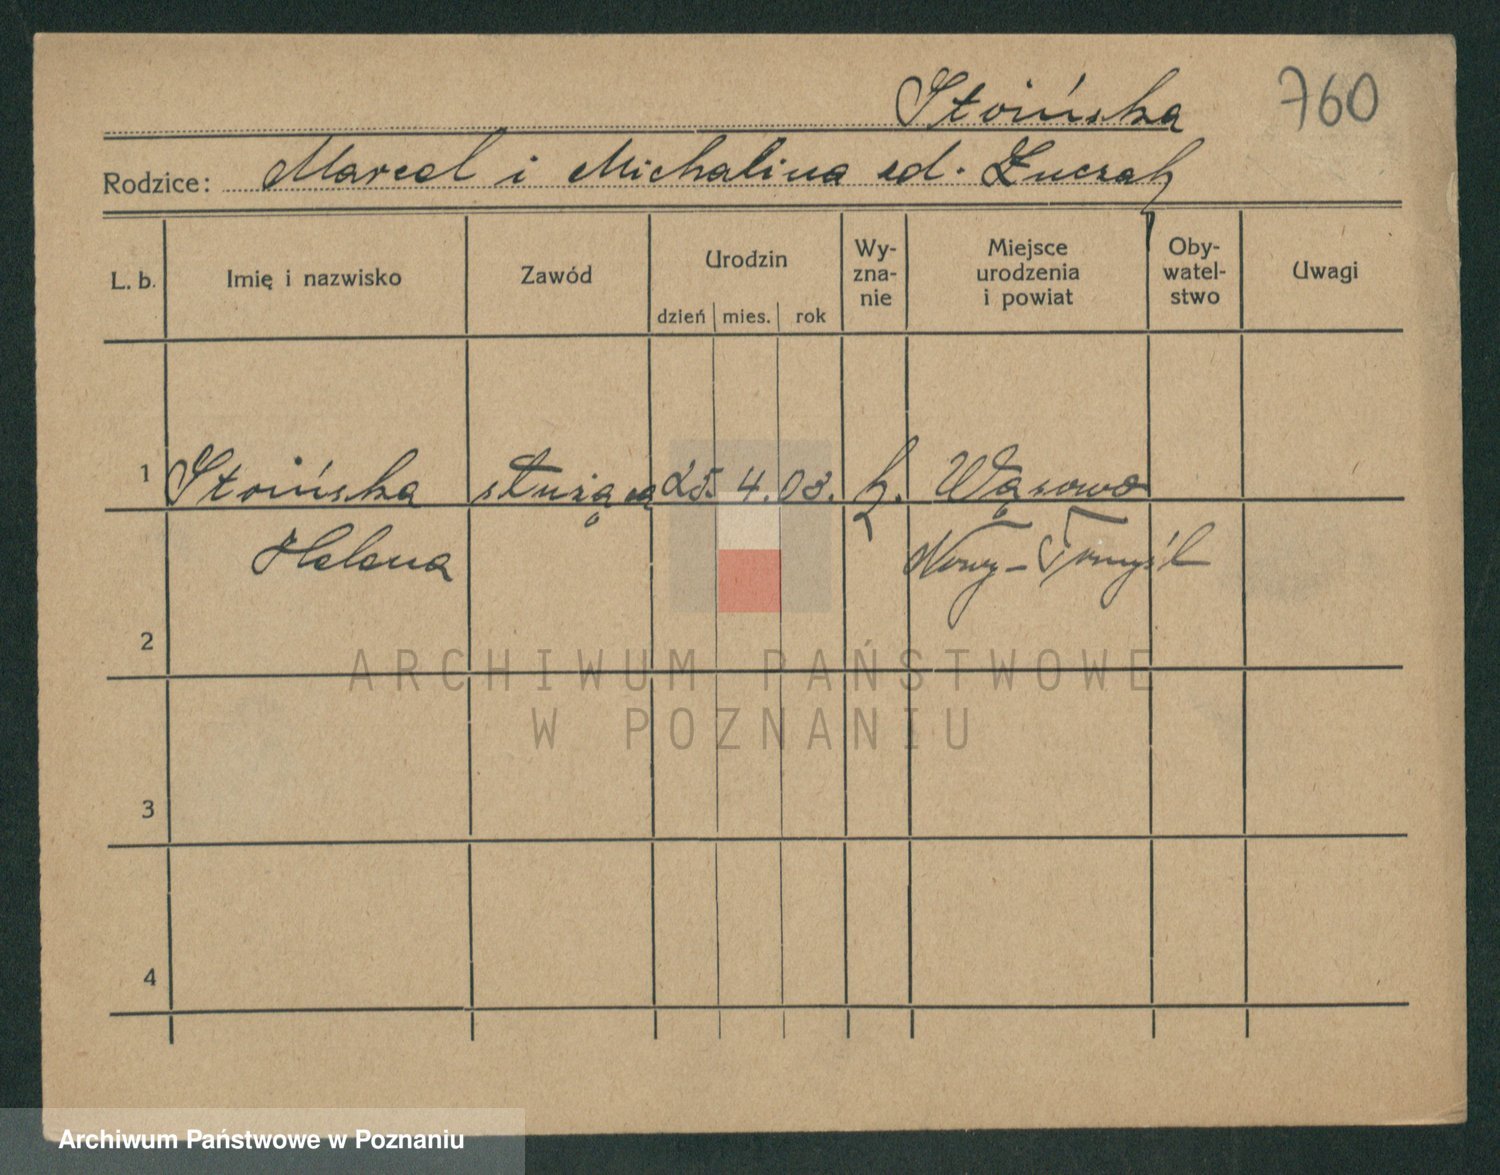 Stoińska 760
Rodzice: Marcel i Michalina zd. Łuczak
L. b. Imię i nazwisko Zawód Urodzin dzień mies. rok Wy-zna-nie Miejsce urodzenia i powiat Oby-watel-stwo Uwagi
1 Stoińska służąca 25. 4. 03. k. Wąsowo
Helena Nowy-Tomyśl
2
ARCHIWUM PAŃSTWOWE
W POZNANIU
3
4
Archiwum Państwowe w Poznaniu